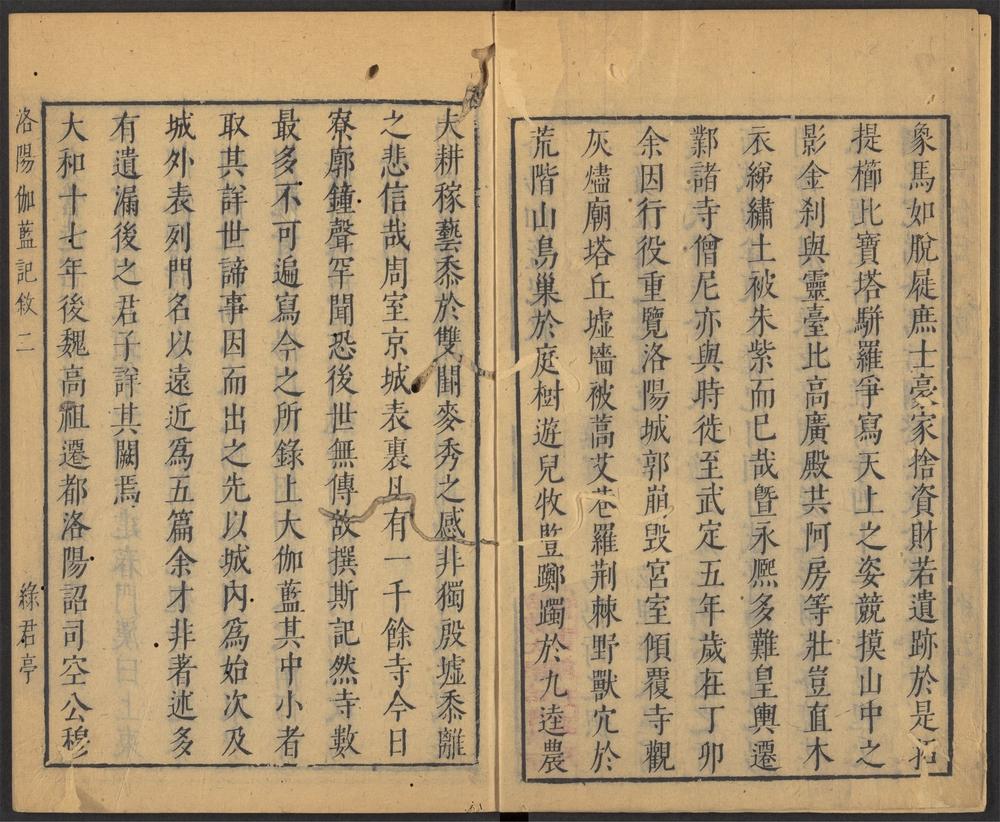 象馬如脫屣庶士豪家捨資財若遺跡於是招
提櫛比寶塔駢羅爭寫天上之姿競摸山中之
影金刹與靈臺比高廣殿共阿房等壯豈直木
衣綈繡土被朱紫而已哉曁永熈多難皇輿遷
鄴諸寺僧尼亦與時徙至武定五年歲在丁卯
余因行役重覽洛陽城郭崩毀宮室傾覆寺觀
灰燼廟塔丘墟墻被蒿艾巷羅荆棘野獸穴於
荒階山鳥巢於庭樹遊兒牧豎躑躅於九逵農
夫耕稼藝黍於雙闕麥秀之感非獨殷墟黍離
之悲信哉周室京城表裏凡有一千餘寺今日
寮廓鐘聲罕聞恐後世無傳故撰斯記然寺數
最多不可遍寫今之所錄上大伽藍其中小者
取其詳世諦事因而出之先以城内爲始次及
城外表列門名以遠近爲五篇余才非著述多
有遺漏後之君子詳其闕焉
大和十七年後魏高祖遷都洛陽詔司空公穆
洛陽伽藍記敘 二 綠君亭